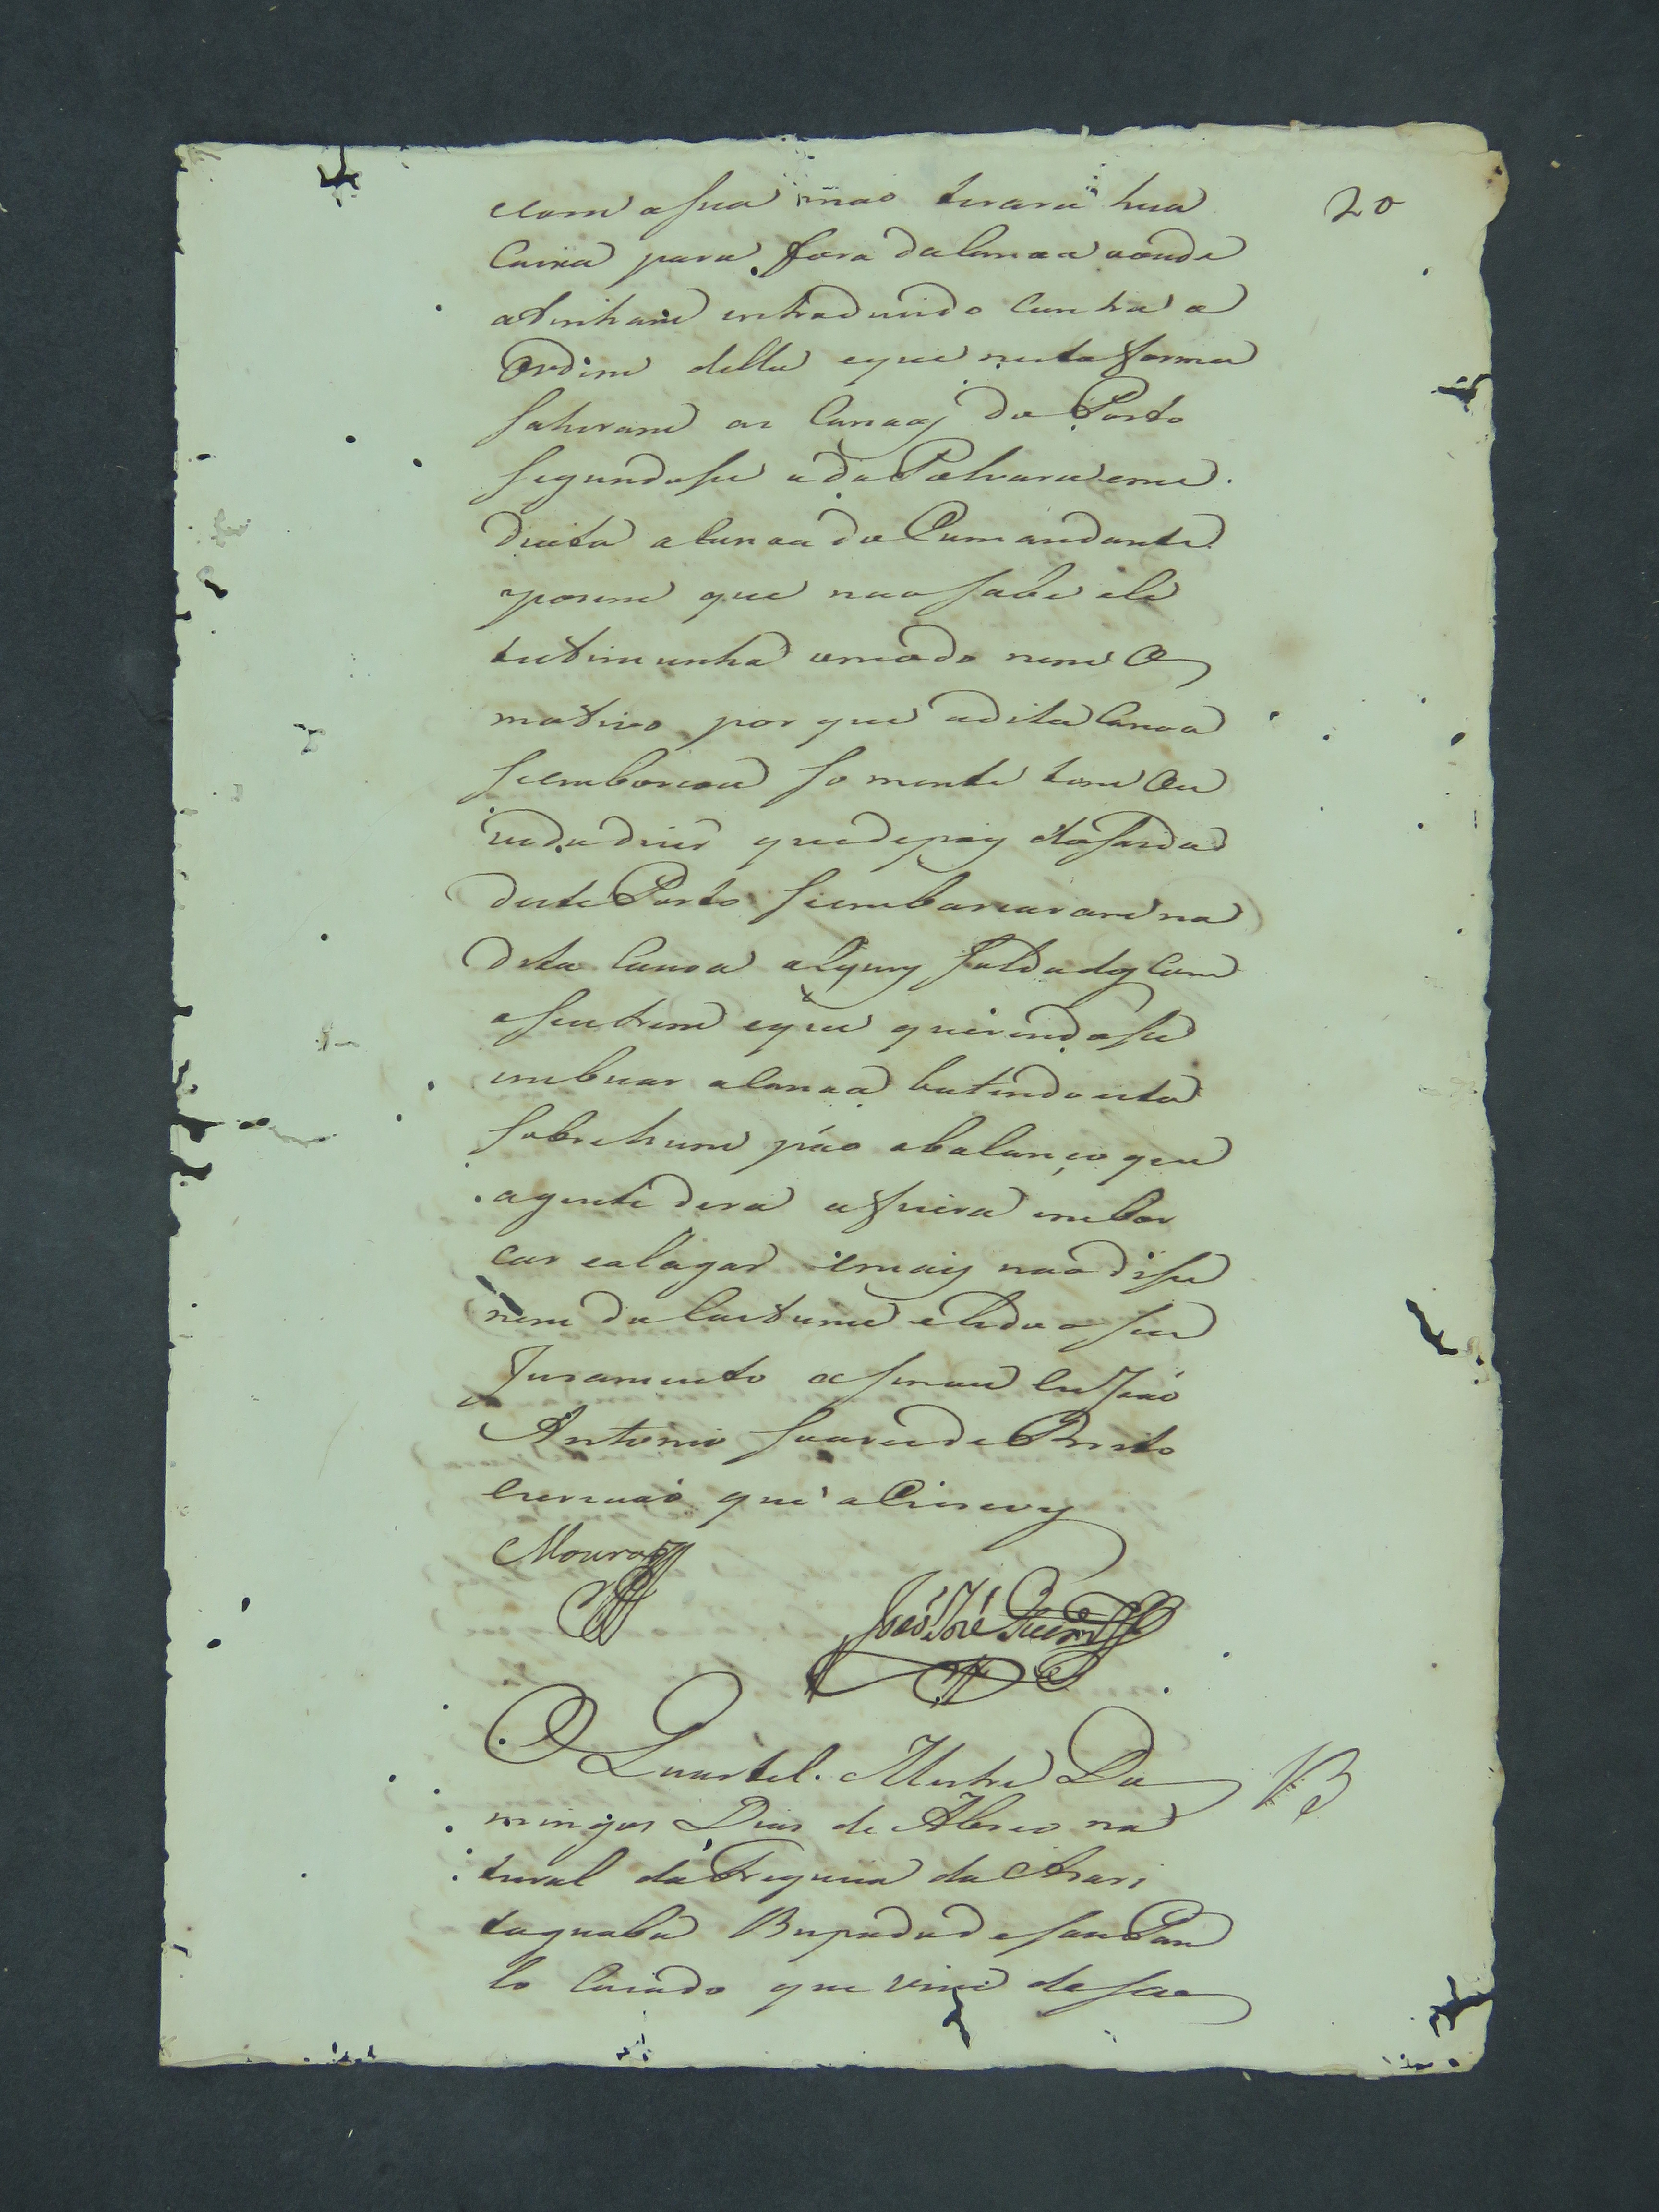 ecom a sua mão tirara hua
Caixa para fora da Canoa aonde
a tinham entroduzido contra a
Ordem delle eque nesta forma
sahiram as Canoas do Porto
seguindose a da Polvara eme
diata a Canoa do Cumandante
porem que nao sabe ele
testimunha omodo nem O
motivo por que adita Canoa
seemborcou so mente tem Ou
vido dizer quedepois dasaida
deste Porto seembarcaram na
dita Canoa alguns Soldados Com
oseu trem eque querendose
embicar a Canoa batendo esta
sobre hum páo abalanço que
agente dera afizera embor
car ealagar emais nao dise
nem do Custume elido o seu
Juramento asinou Eu João
Antonio Soares de Brito
Escrivaó que oEscrevy
Moura
João José
20
O Quartel Mestre Do
mingos Dias de Abreo na
tural da Freguezia de Arari
taguaba Bispado de Sam Pau
lo Cazado que vive de seo